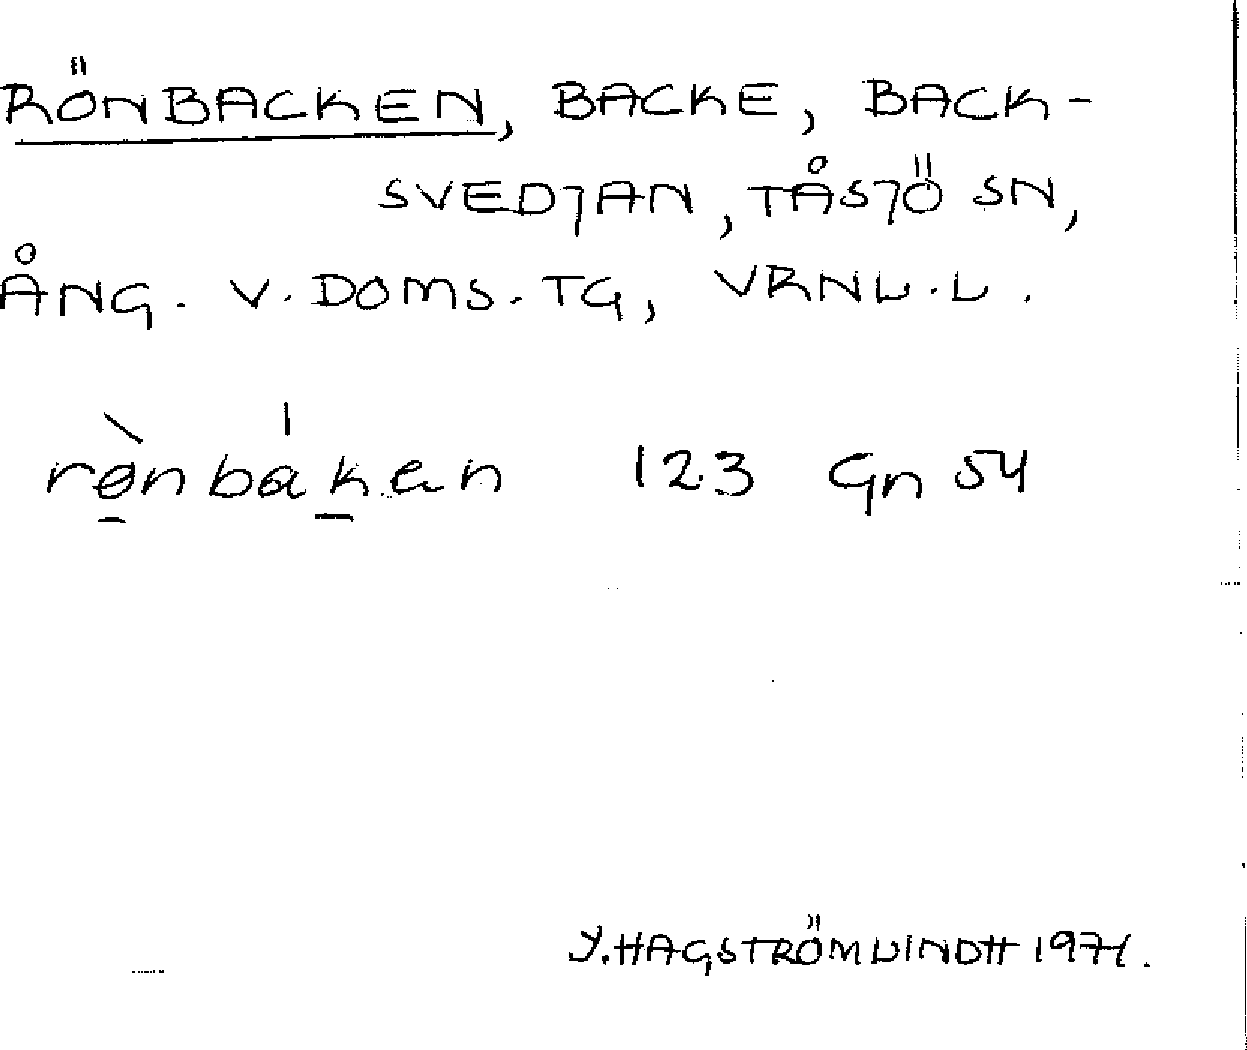 RÖNBACKEN, BACKE, BACK-
SVEDJAN, TÅSJÖ SN,
ÅNG. V. DOMS. TG, VRNL. L.
rø̀nbáken 123 Gn 54
Y. HAGSTRÖM LINDH 1971.